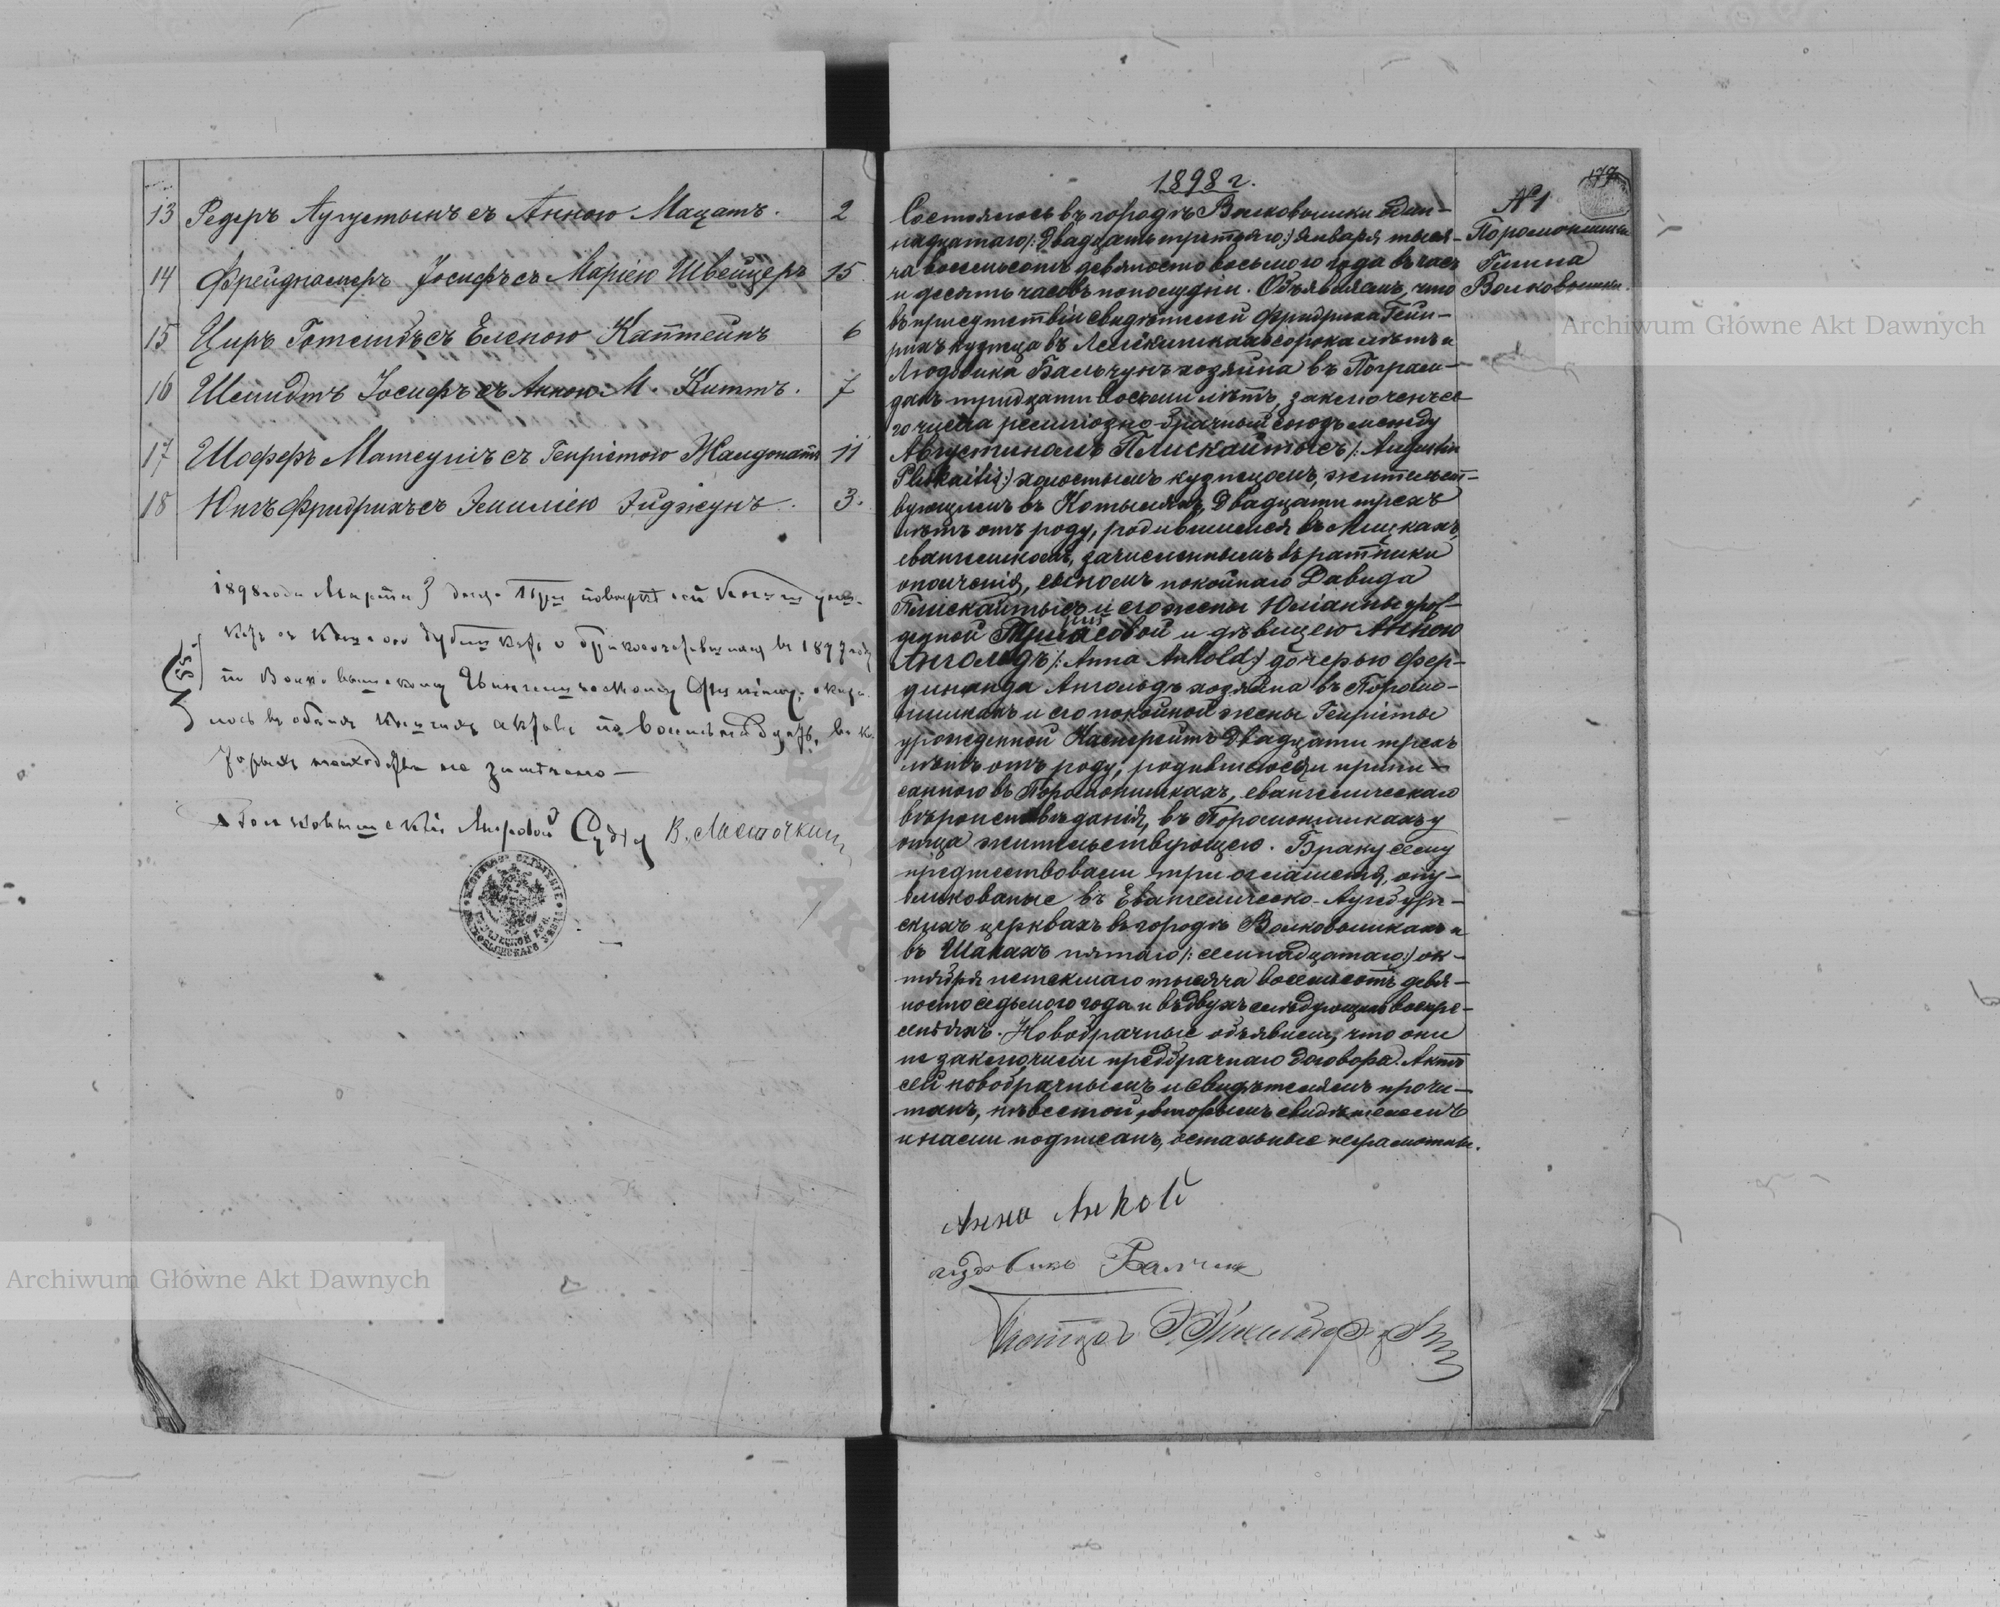 13 Редеръ Аугустынъ съ Анною Мацатъ. 2
14 Фрейдгофферъ Іосифъ съ Маріею Швейцеръ 15
15 Циръ Готлибъ съ Еленою Каптейнъ 6
16 Шмидтъ Іосифъ съ Анною М. Киттъ. 7
17 Шефферъ Матеушъ съ Генріетою Жандонатъ 11
18 Юнгъ Фридрихъ съ Эмиліею Эйджунъ. 3.
1898 года Марта 3 дня. При повѣркѣ сей книги
въ 1897 году
по Волковышскому Евангелическому приходу, оказа-
лось въ обѣихъ книгахъ актовъ по восемнадцать, въ ко-
торыхъ не замѣчено
Волковышскій Мировой Судья В. Ласточкинъ
1898 г.
№ 1
Поромонишки
Гмина
Волковышки.
Состоялось въ городѣ Волковышки один-
надцатаго /: двадцать третьяго :/ Января тыся-
ча восемьсотъ девяносто восьмого года въ часъ
и десять часовъ пополудни. Объявляемъ, что
въ присутствіи свидѣтелей Фридриха Гейн-
рихъ кузнеца въ сорока лѣтъ и
Людовика Бальчунъ хозяина въ Пограм-
дахъ тридцати восьми лѣтъ, заключенъ се-
го числа религіозно-брачный союзъ между
Августиномъ Плискайтысъ /: Augustin
Pliskaitis :/ холостымъ кузнецомъ, жительст-
вующимъ въ двадцати трехъ
лѣтъ отъ роду, родившимся въ Мицкахъ,
евангеликомъ, зачисленнымъ въ ратники
ополченія, сыномъ покойнаго Давида
Плискайтысъ и его жены Юліанны урож-
денной и дѣвицею Анною
Ангольдъ /: Anna Ankold :/ дочерью Фер-
динанда Ангольдъ хозяина въ Поромо-
нишкахъ и его покойной жены Генріеты
урожденной Касперейтъ двадцати трехъ
лѣтъ отъ роду, родившеюся и припи-
санною въ Поромонишкахъ, евангелическаго
вѣроисповѣданія, въ Поромонишкахъ у
отца жительствующею. Браку сему
предшествовали три оглашенія, опу-
бликованые въ Евангелическо-Аугсбург-
скихъ церквахъ въ городѣ Волковышкахъ и
въ Шакахъ пятаго /: семнадцатаго :/ ок-
тября истекшаго тысяча восемьсотъ девя-
носто седьмого года и въ двухъ слѣдующихъ воскре-
сеніяхъ. Новобрачные объявили, что они
не заключили предбрачнаго договора. Актъ
сей новобрачнымъ и свидѣтелямъ прочи-
танъ, невѣстой, вторымъ свидѣтелемъ
и нами подписанъ, остальные неграмотны.
Анна Анкольд
Людовикъ Балчун
Пасторъ
Archiwum Główne Akt Dawnych
Archiwum Główne Akt Dawnych